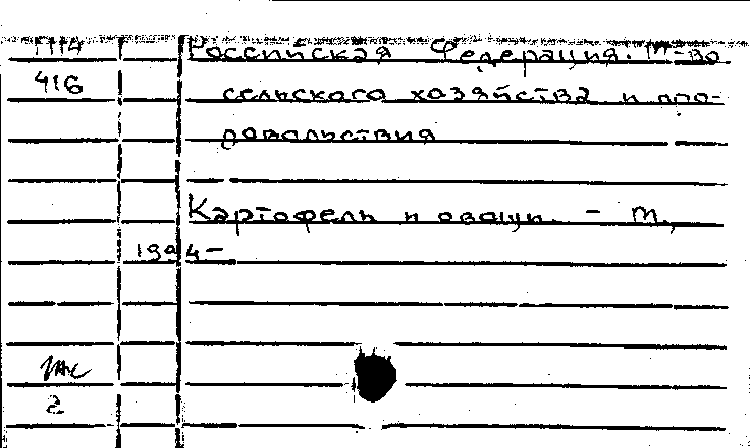 П14
416
Российская Федерация. М-во
сельского хозяйства и про-
довольствия
Картофель и овощи. – М.,
1994–
2